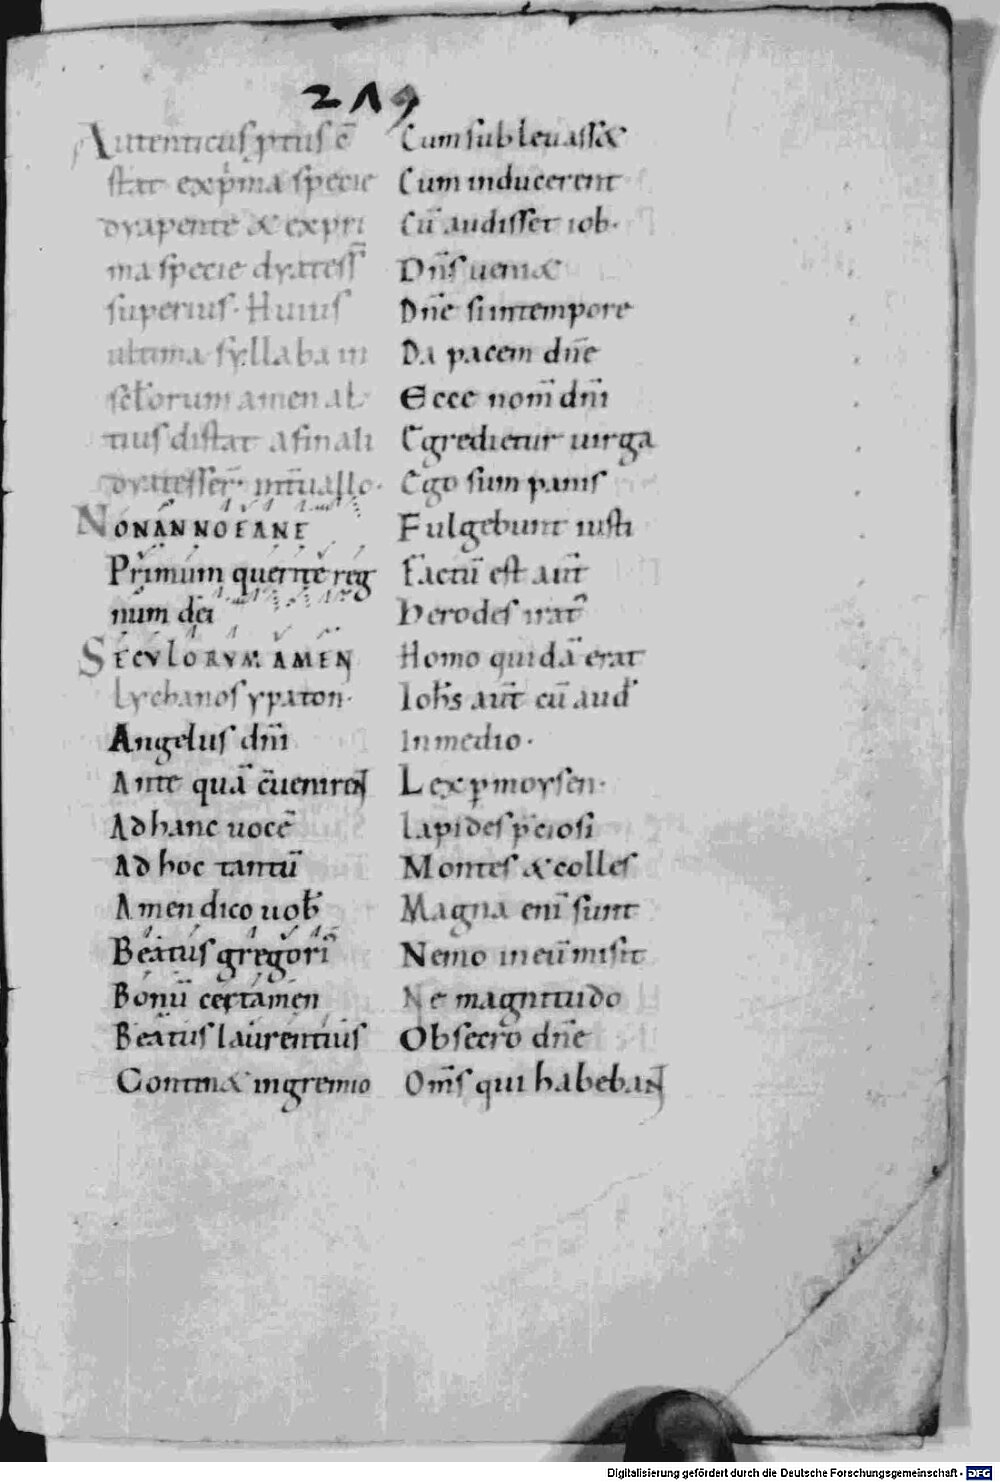 219
Autenticus ptus ē
stat ex p̄ma specie
dyapente & ex pri
ma specie dyatess̄
superius. Huius
ultima syllaba in
sclorum amen al
tius distat a finali
dyatesser̄. int̄uallo.
NONANNOEANE
Primum querite reg
num dei
SECVLORVM AMEN
Lychanos ypaton.
Angelus dn̄i
Ante quā c̄uenirent
Ad hanc uocē
Ad hoc tantū
Amen dico uob̄
Beatus gregori
Bonū certamen
Beatus laurentius
Contin& in gremio
Cum subleuass&
Cum inducerent
Cū audisset iob.
Dn̄s ueni&
Dn̄e si in tempore
Da pacem dn̄e
Ecce nom̄ dn̄i
Egredietur uirga
Ego sum panis
Fulgebunt iusti
Factū est aut̄
Herodes irat
Homo quidā erat
Ioh̄s aut̄ cū aud
In medio.
Lex p moysen.
Lapides p̄ciosi
Montes & colles
Magna eni sunt
Nemo in eū misit
Ne magnitudo
Obsecro dn̄e
Om̄s qui habebant
Digitalisierung gefördert durch die Deutsche Forschungsgemeinschaft - DFG